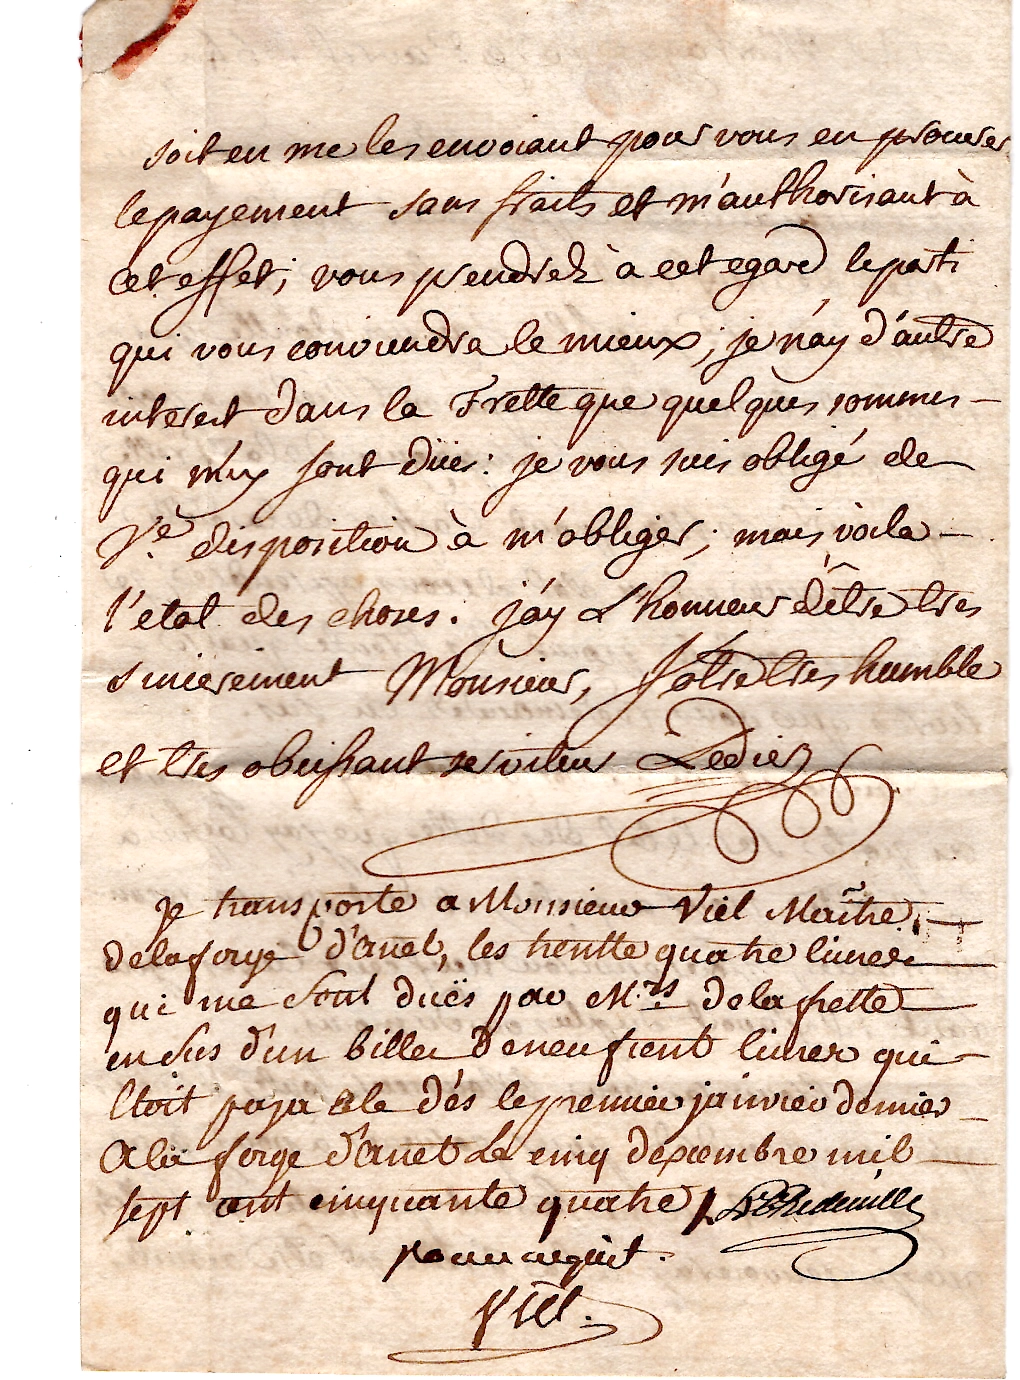 soit en me les envoiant pour vous en procurer
le payement sans fraits et m'authorisant à
cet effet; vous prendrez à cet egard le parti
qui vous conviendra le mieux; je n'ay d'autre
interest dans la Frette que quelques sommes
qui m'y sont düës: je vous suis obligé de
Vre disposition à m'obliger; mais voila
l'etat des choses. j'ay L'honneur d'être tres
sincerement Monsieur, Votre tres humble
et tres obeissant serviteur Dedier
je transporte a Monsieur Viel Maitre
de la forge d'anet, les trentte quatre livres
qui me sont duës par Mrs de la frette
en sus d'un billet de neuf cent livres qui
Etoit payable dés le premier janvier dernier
A la forge d'anet Le cinq decembre mil
sept cent cinquante quatre
pour acquit.
Viel.